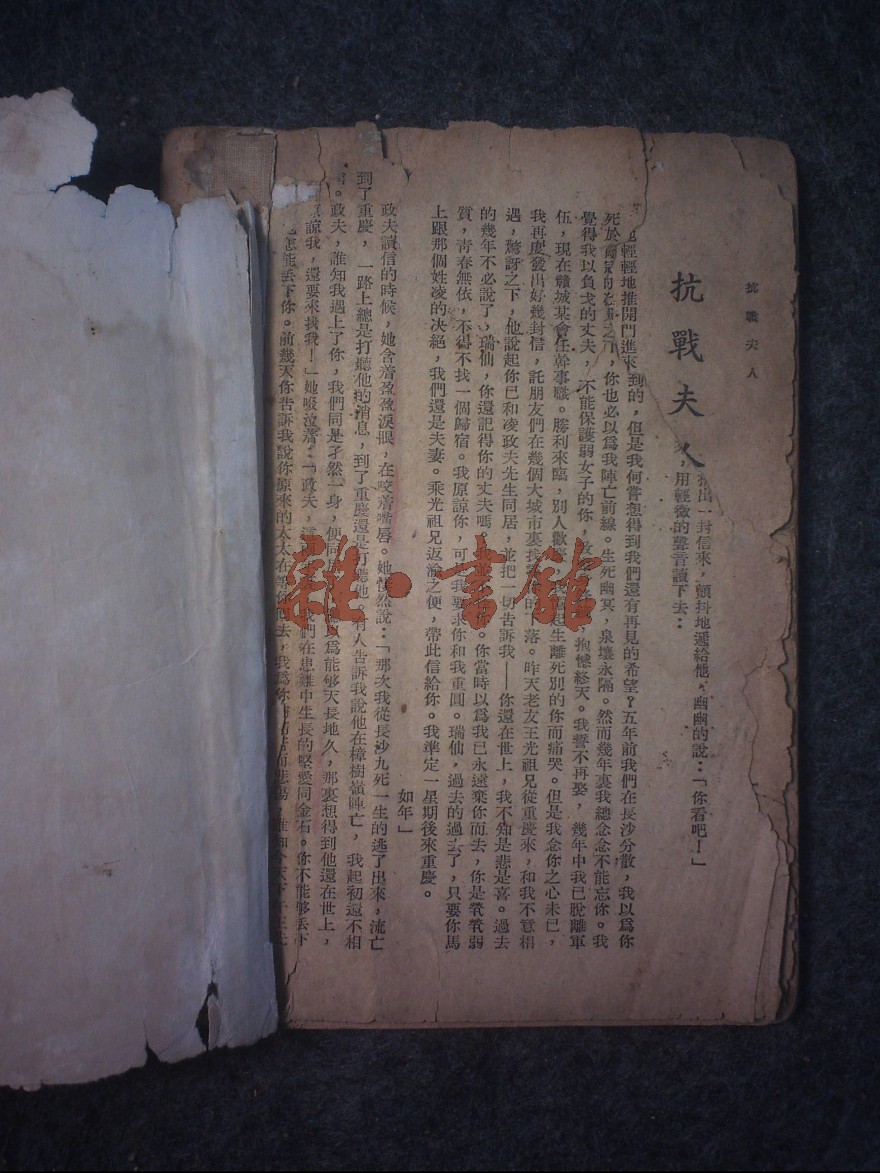 抗戰夫人
抗戰夫人
出一封信來，顫抖地遞給他，幽幽的說：「你看吧！」
，用輕微的聲音讀下去：
輕輕地推開門進來
到的，但是我何嘗想得到我們還有再見的希望？五年前我們在長沙分散，我以爲你
死於
你也必以爲我陣亡前線。生死幽冥，泉壤永隔。然而幾年裏我總念念不能忘你。我
覺得我以負戈的丈夫，不能保護弱女子的你，抱憾終天。我誓不再娶，幾年中我已脫離軍
伍，現在贛城某會任幹事職。勝利來臨，別人歡慶，生離死別的你而痛哭。但是我念你之心未已，
我再度發出好幾封信，託朋友們在幾個大城市裏找落。昨天老友王光祖兄從重慶來，和我不意相
遇，驚訝之下，他說起你已和凌政夫先生同居，並把一切告訴我——你還在世上，我不知是悲是喜。過去
的幾年不必說了，瑞仙，你還記得你的丈夫嗎。你。你當時以爲我已永遠棄你而去，你是煢煢弱
質，青春無依，不得不找一個歸宿。我原諒你，可我要求你和我重圓。瑞仙，過去的過去了，只要你馬
上跟那個姓凌的決絕，我們還是夫妻。乘光祖兄返渝之便，帶此信給你。我準定一星期後來重慶。
如年」
政夫讀信的時候，她含着盈盈淚眼，在咬着嘴唇。她悽然說：「那次我從長沙九死一生的逃了出來，流亡
到了重慶，一路上總是打聽他的消息，到了重慶還是打聽他，有人告訴我說他在樟樹嶺陣亡，我起初還不相
信。政夫，誰知我遇上了你，我們同是孑然一身，便同爲能够天長地久，那裏想得到他還在世上，
原諒我，還要來找我！」她啜泣着：「政夫，我們在患難中生長的堅愛同金石。你不能够丟下
怎能丟下你。前幾天你告訴我說你原來的太太在等你回去，我爲你
雜·書館